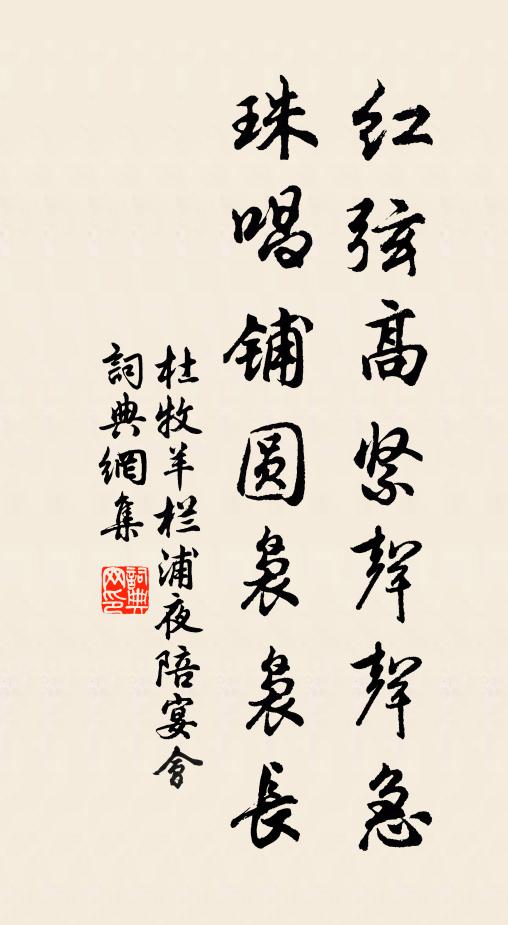 红弦高紧聲聲急
珠唱铺圆袅袅長
杜牧羊栏浦夜陪宴會
詞典網集
詞典網印